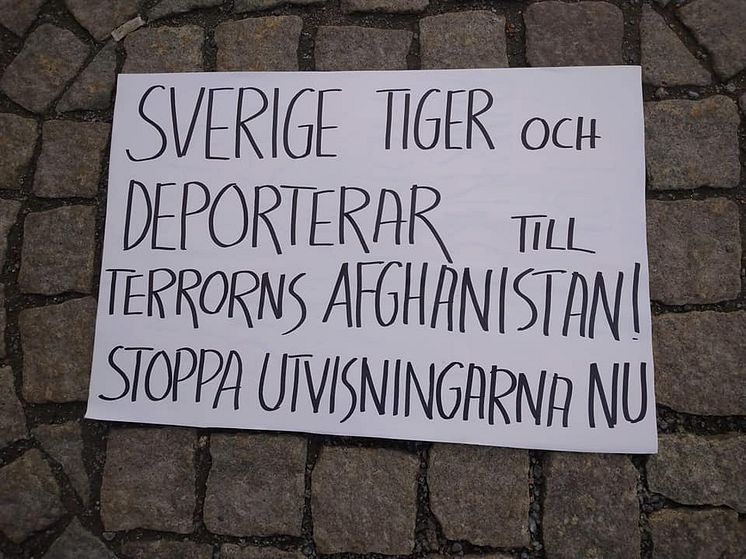 SVERIGE TIGER OCH
DEPORTERAR TILL
TERRORNS AFGHANISTAN!
STOPPA UTVISNINGARNA NU